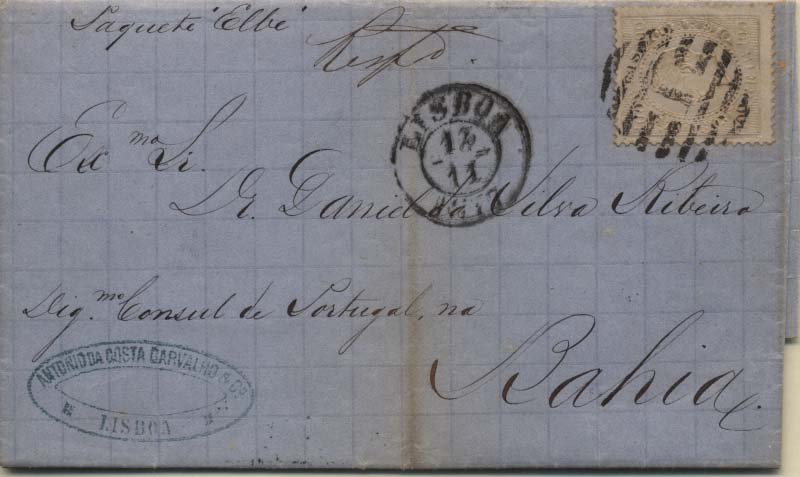 Paquete "Elbe"
LISBOA
13
11
Ex.mo Sr.
Dr. Daniel da Silva Ribeiro
Dig.mo Consul de Portugal, na
Bahia.
ANTONIO DA COSTA CARVALHO & Cª
LISBOA